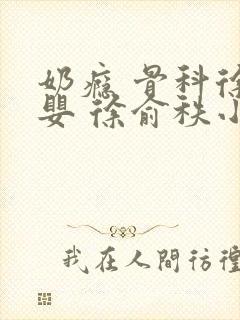 奶瘾 骨科徐
婴 徐俞秩小
我在人間彷徨